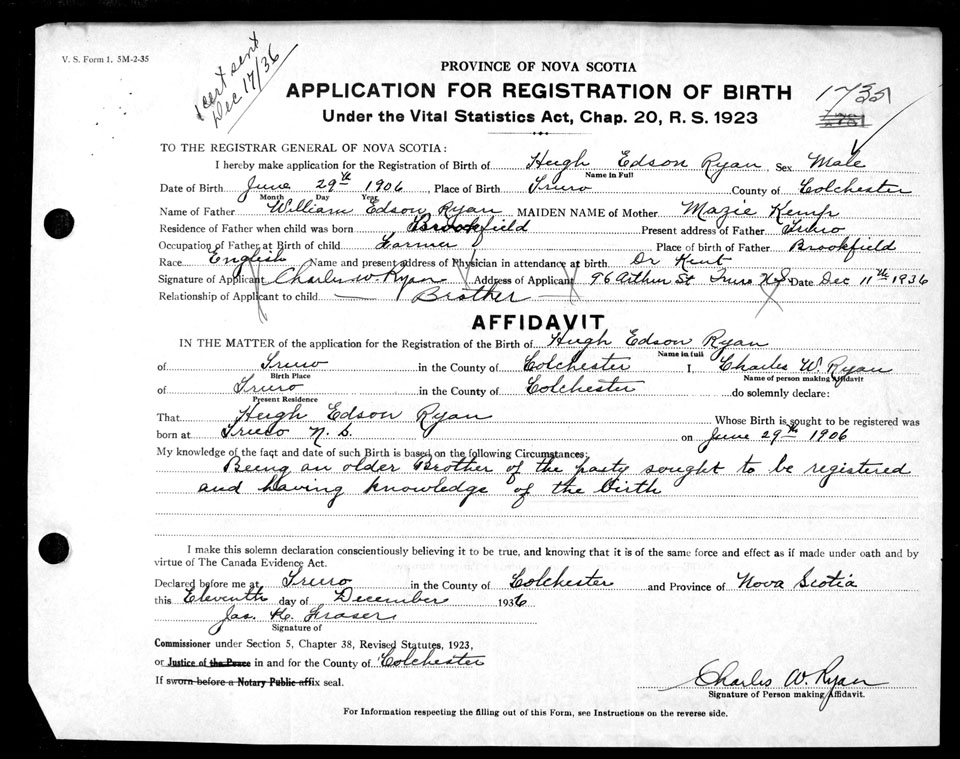 V. S. Form 1, 5M-2-35
cert sent
Dec 17/36
PROVINCE OF NOVA SCOTIA
APPLICATION FOR REGISTRATION OF BIRTH
Under the Vital Statistics Act, Chap. 20, R. S. 1923
TO THE REGISTRAR GENERAL OF NOVA SCOTIA:
I hereby make application for the Registration of Birth of Hugh Edson Ryan Sex Male
Name in Full
Date of Birth June 29th 1906, Place of Birth Truro County of Colchester
Month Day Year
Name of Father William Edson Ryan MAIDEN NAME of Mother Mazie Kemp
Residence of Father when child was born Brookfield Present address of Father Truro
Occupation of Father at Birth of child Farmer Place of birth of Father Brookfield
Race English Name and present address of Physician in attendance at birth Dr Kent
Signature of Applicant Charles W. Ryan Address of Applicant 96 Arthur St Truro N.S. Date Dec 11th 1936
Relationship of Applicant to child Brother
AFFIDAVIT
IN THE MATTER of the application for the Registration of the Birth of Hugh Edson Ryan
Name in full
of Truro in the County of Colchester I, Charles W. Ryan
Birth Place Name of person making Affidavit
of Truro in the County of Colchester do solemnly declare:
Present Residence
That Hugh Edson Ryan Whose Birth is sought to be registered was
born at Truro N.S. on June 29th 1906
My knowledge of the fact and date of such Birth is based on the following Circumstances:
Being an older Brother of the party sought to be registered
and having knowledge of the birth
I make this solemn declaration conscientiously believing it to be true, and knowing that it is of the same force and effect as if made under oath and by
virtue of The Canada Evidence Act.
Declared before me at Truro in the County of Colchester and Province of Nova Scotia
this Eleventh day of December 1936
Jas. K. Fraser
Signature of
Commissioner under Section 5, Chapter 38, Revised Statutes, 1923,
or Justice of the Peace in and for the County of Colchester
If sworn before a Notary Public affix seal.
Charles W. Ryan
Signature of Person making Affidavit.
For Information respecting the filling out of this Form, see Instructions on the reverse side.